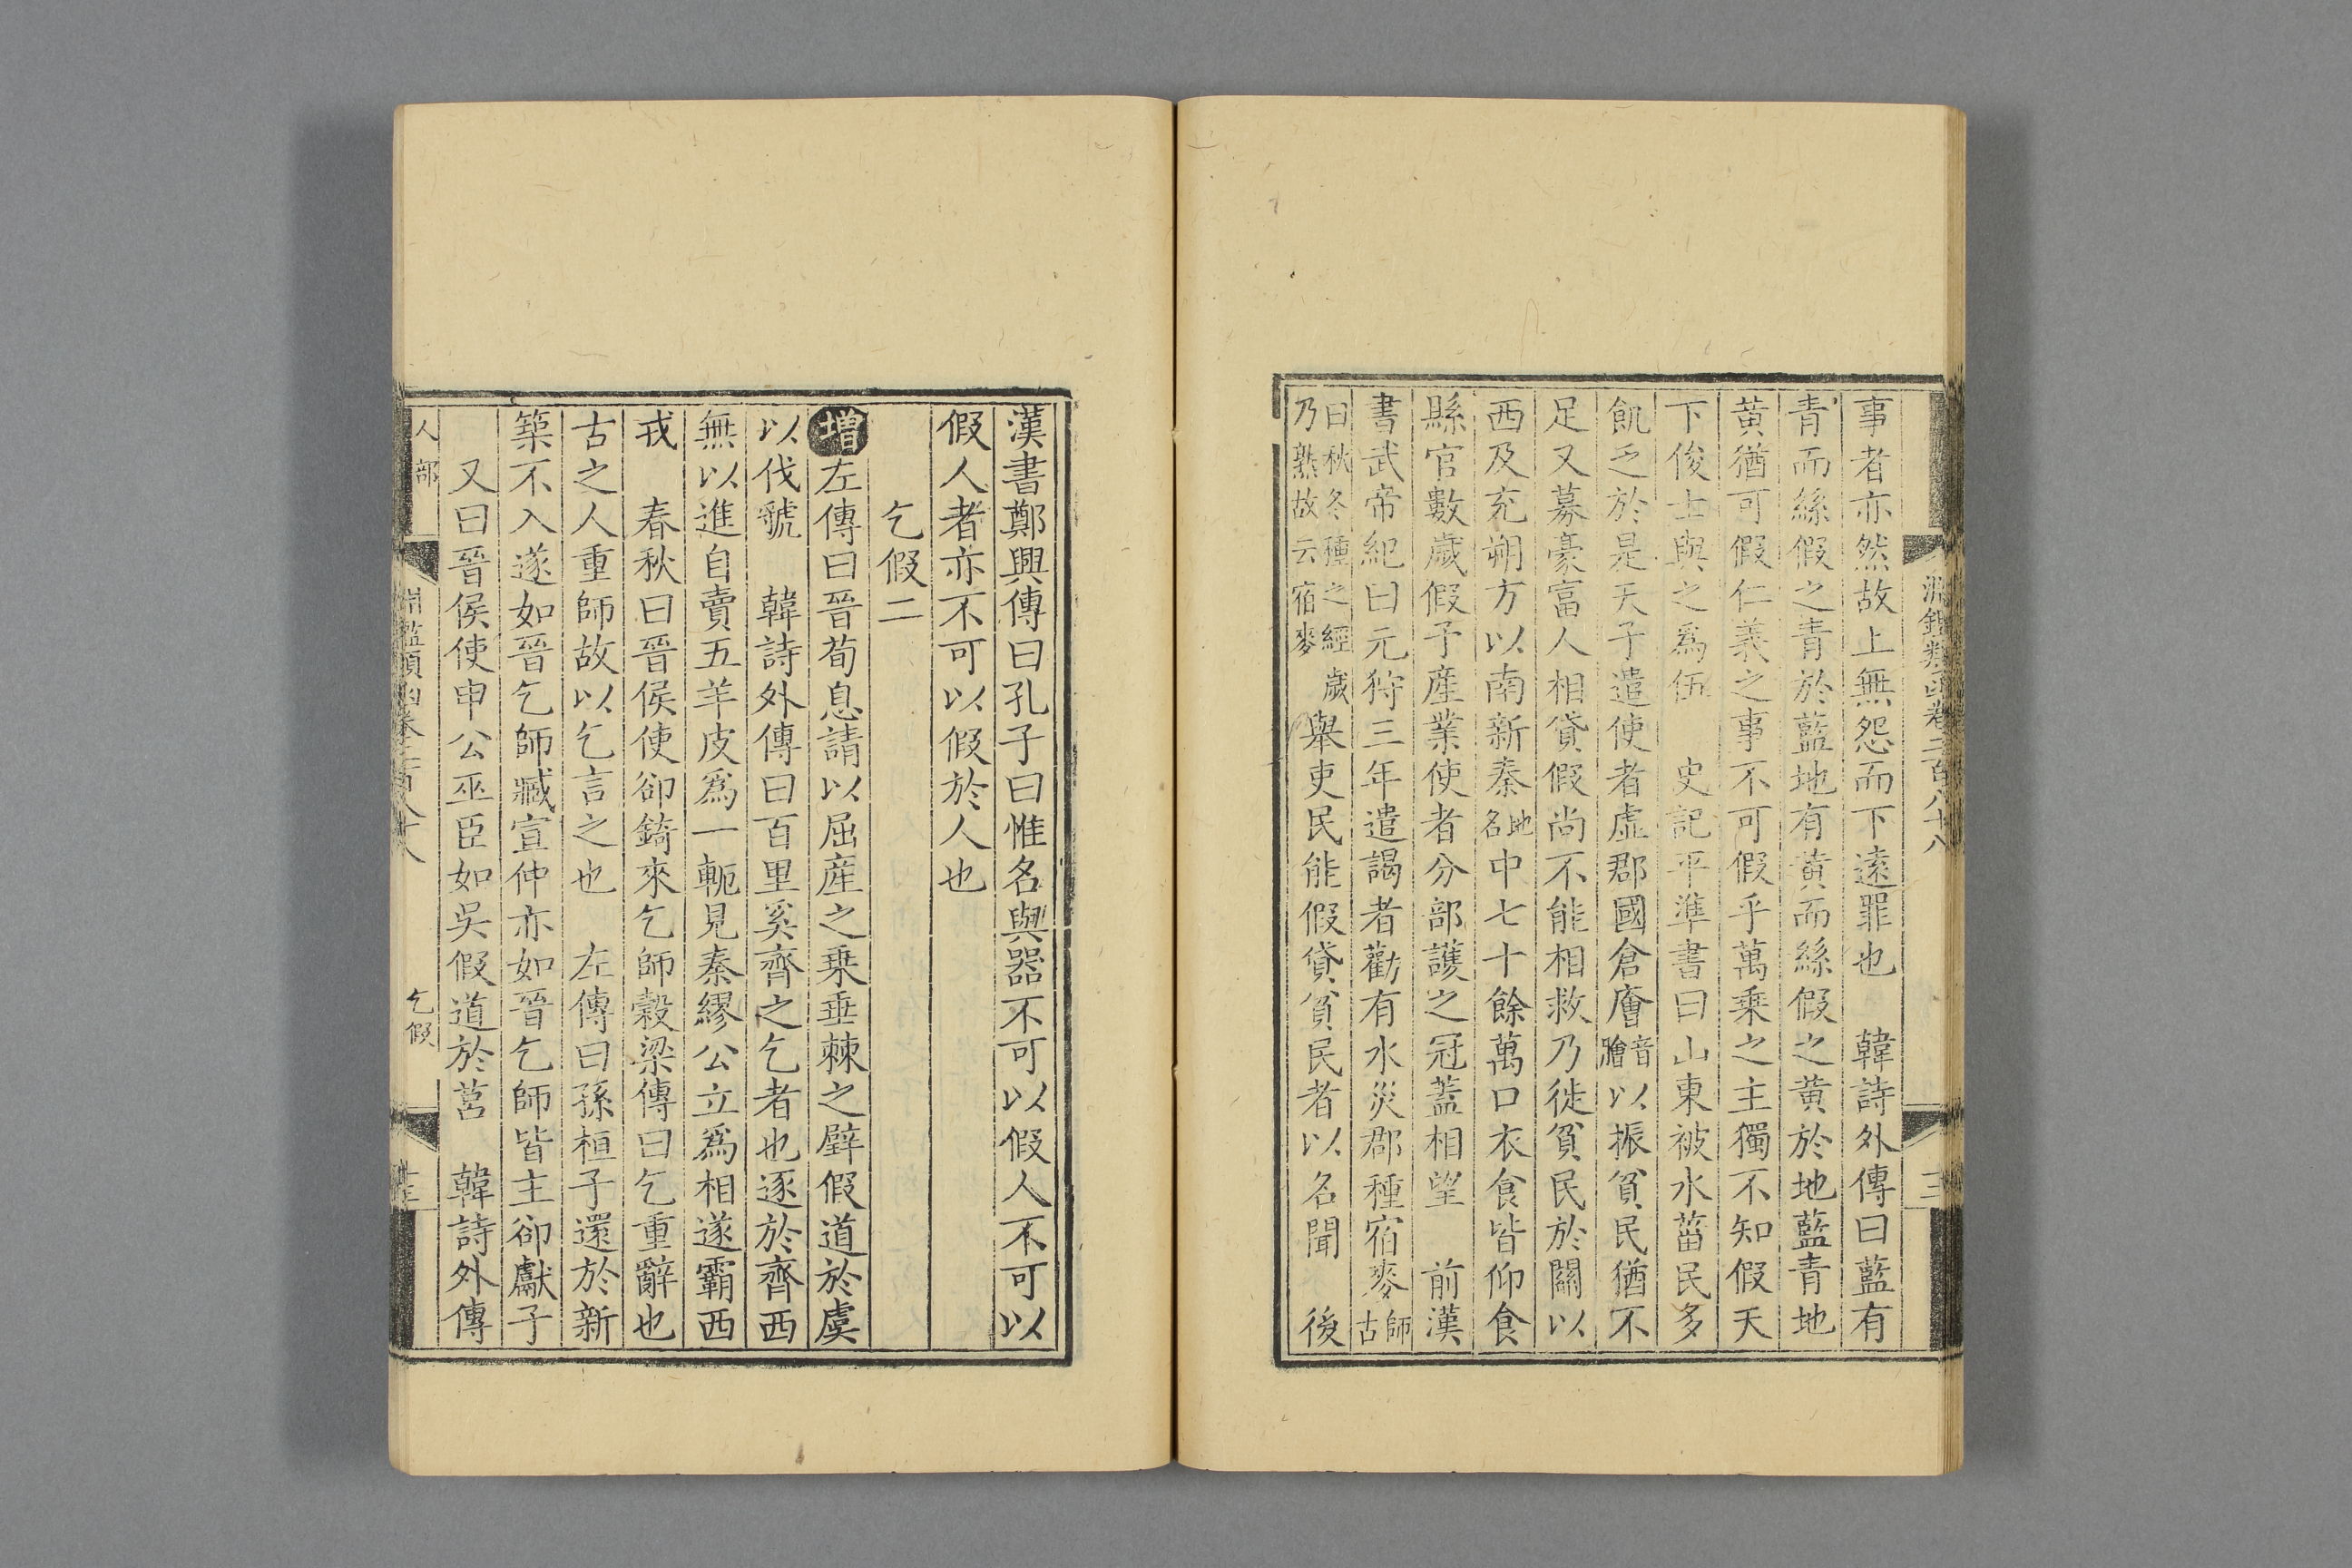 淵鑑類函卷二百八十八
事者亦然故上無怨而下遠罪也　韓詩外傳曰藍有
青而絲假之青於藍地有黄而絲假之黄於地藍青地
黄猶可假仁義之事不可假乎萬乗之主獨不知假天
下俊士與之爲伍　史記平準書曰山東被水菑民多
飢乏於是天子遣使者虛郡國倉廥音膾以振貧民猶不
足又募豪富人相貸假尚不能相救乃徙貧民於關以
西及充朔方以南新秦地名中七十餘萬口衣食皆仰食
縣官數歲假予産業使者分部護之冠蓋相望　前漢
書武帝紀曰元狩三年遣謁者勸有水災郡種宿麥師古
曰秋冬種之經歲乃熟故云宿麥　舉吏民能假貸貧民者以名聞　後
漢書鄭興傳曰孔子曰惟名與器不可以假人不可以
假人者亦不可以假於人也
乞假二
增左傳曰晉荀息請以屈産之乗垂棘之璧假道於虞
以伐虢　韓詩外傳曰百里奚齊之乞者也逐於齊西
無以進自賣五羊皮爲一軛見秦繆公立爲相遂霸西
戎　春秋曰晉侯使郤錡來乞師穀梁傳曰乞重辭也
古之人重師故以乞言之也　左傳曰孫桓子還於新
築不入遂如晉乞師臧宣仲亦如晉乞師皆主郤獻子
又曰晉侯使申公巫臣如吳假道於莒　韓詩外傳
人部
淵鑑類函卷二百八十八
乞假